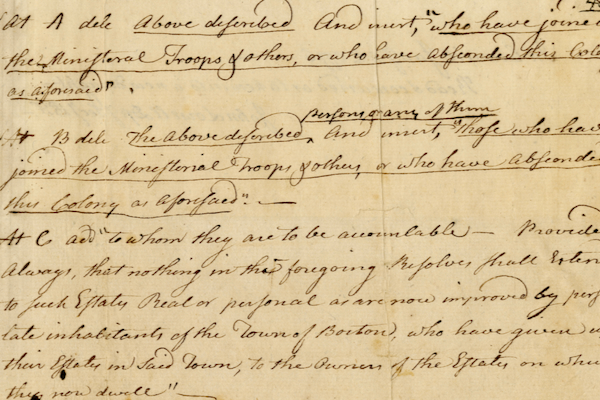 At A dele Above described And insert, "who have joined
the Ministeral Troops & others, or who have Absconded this Colo
as aforesaid".
persons or any of them
At B dele the Above described, And insert, "those who have
joined the Ministerial Troops & others, or who have Absconded
this Colony as aforesaid". —
At C add "to whom they are to be accountable — Provided
Always, that nothing in the foregoing Resolves shall Exten
to such Estates Real or personal as are now improved by pers
late inhabitants of the Town of Boston, who have given u
their Estates in Said Town, to the Owners of the Estates on whic
they now dwell" —